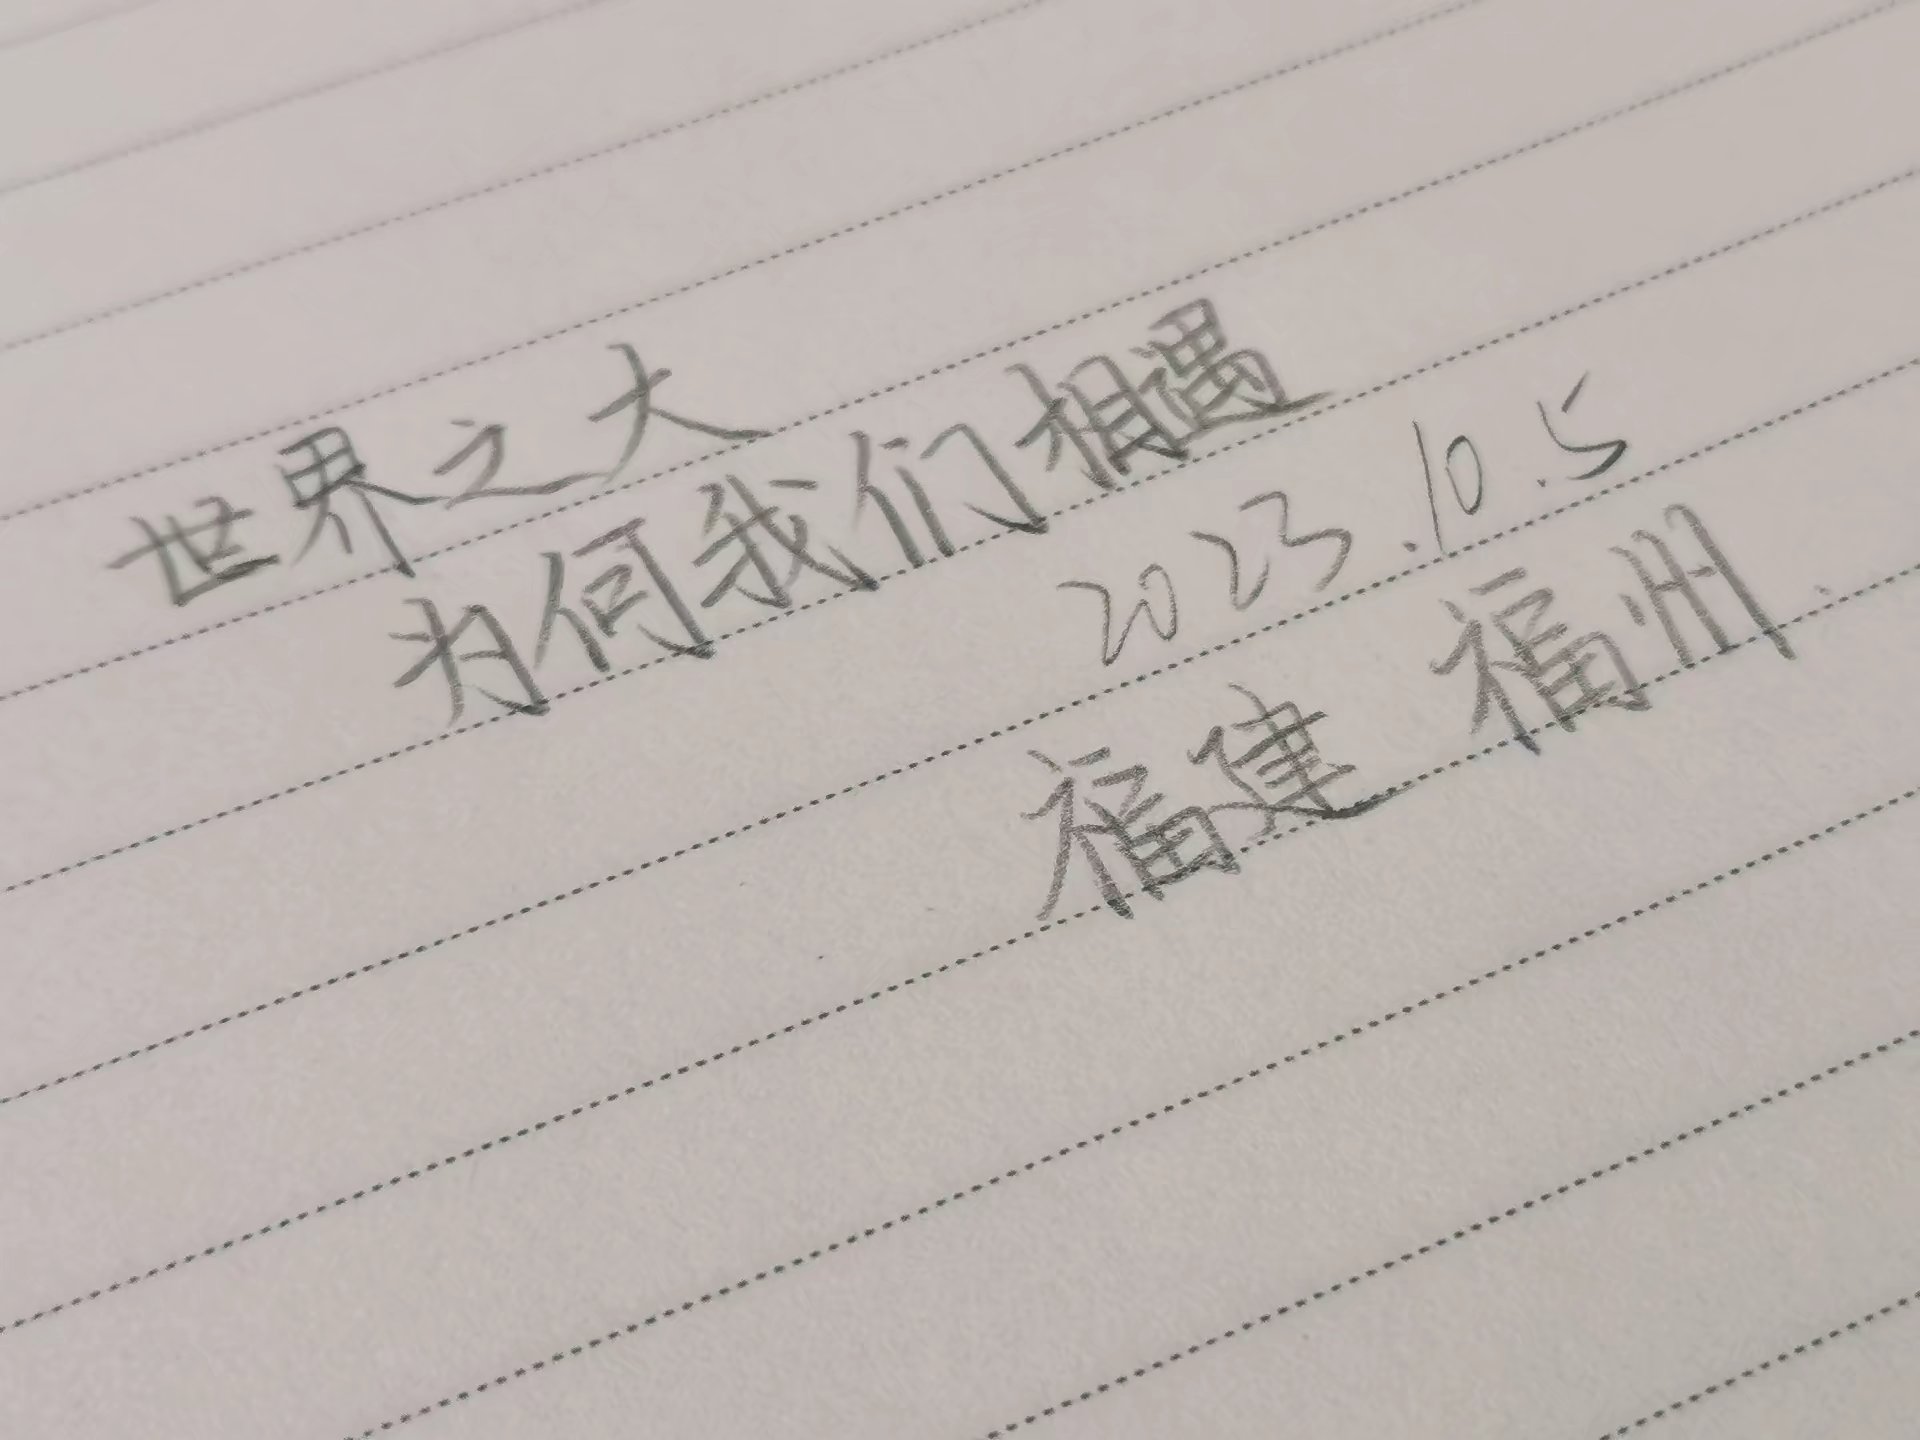 世界之大
为何我们相遇
2023.10.5
福建 福州.